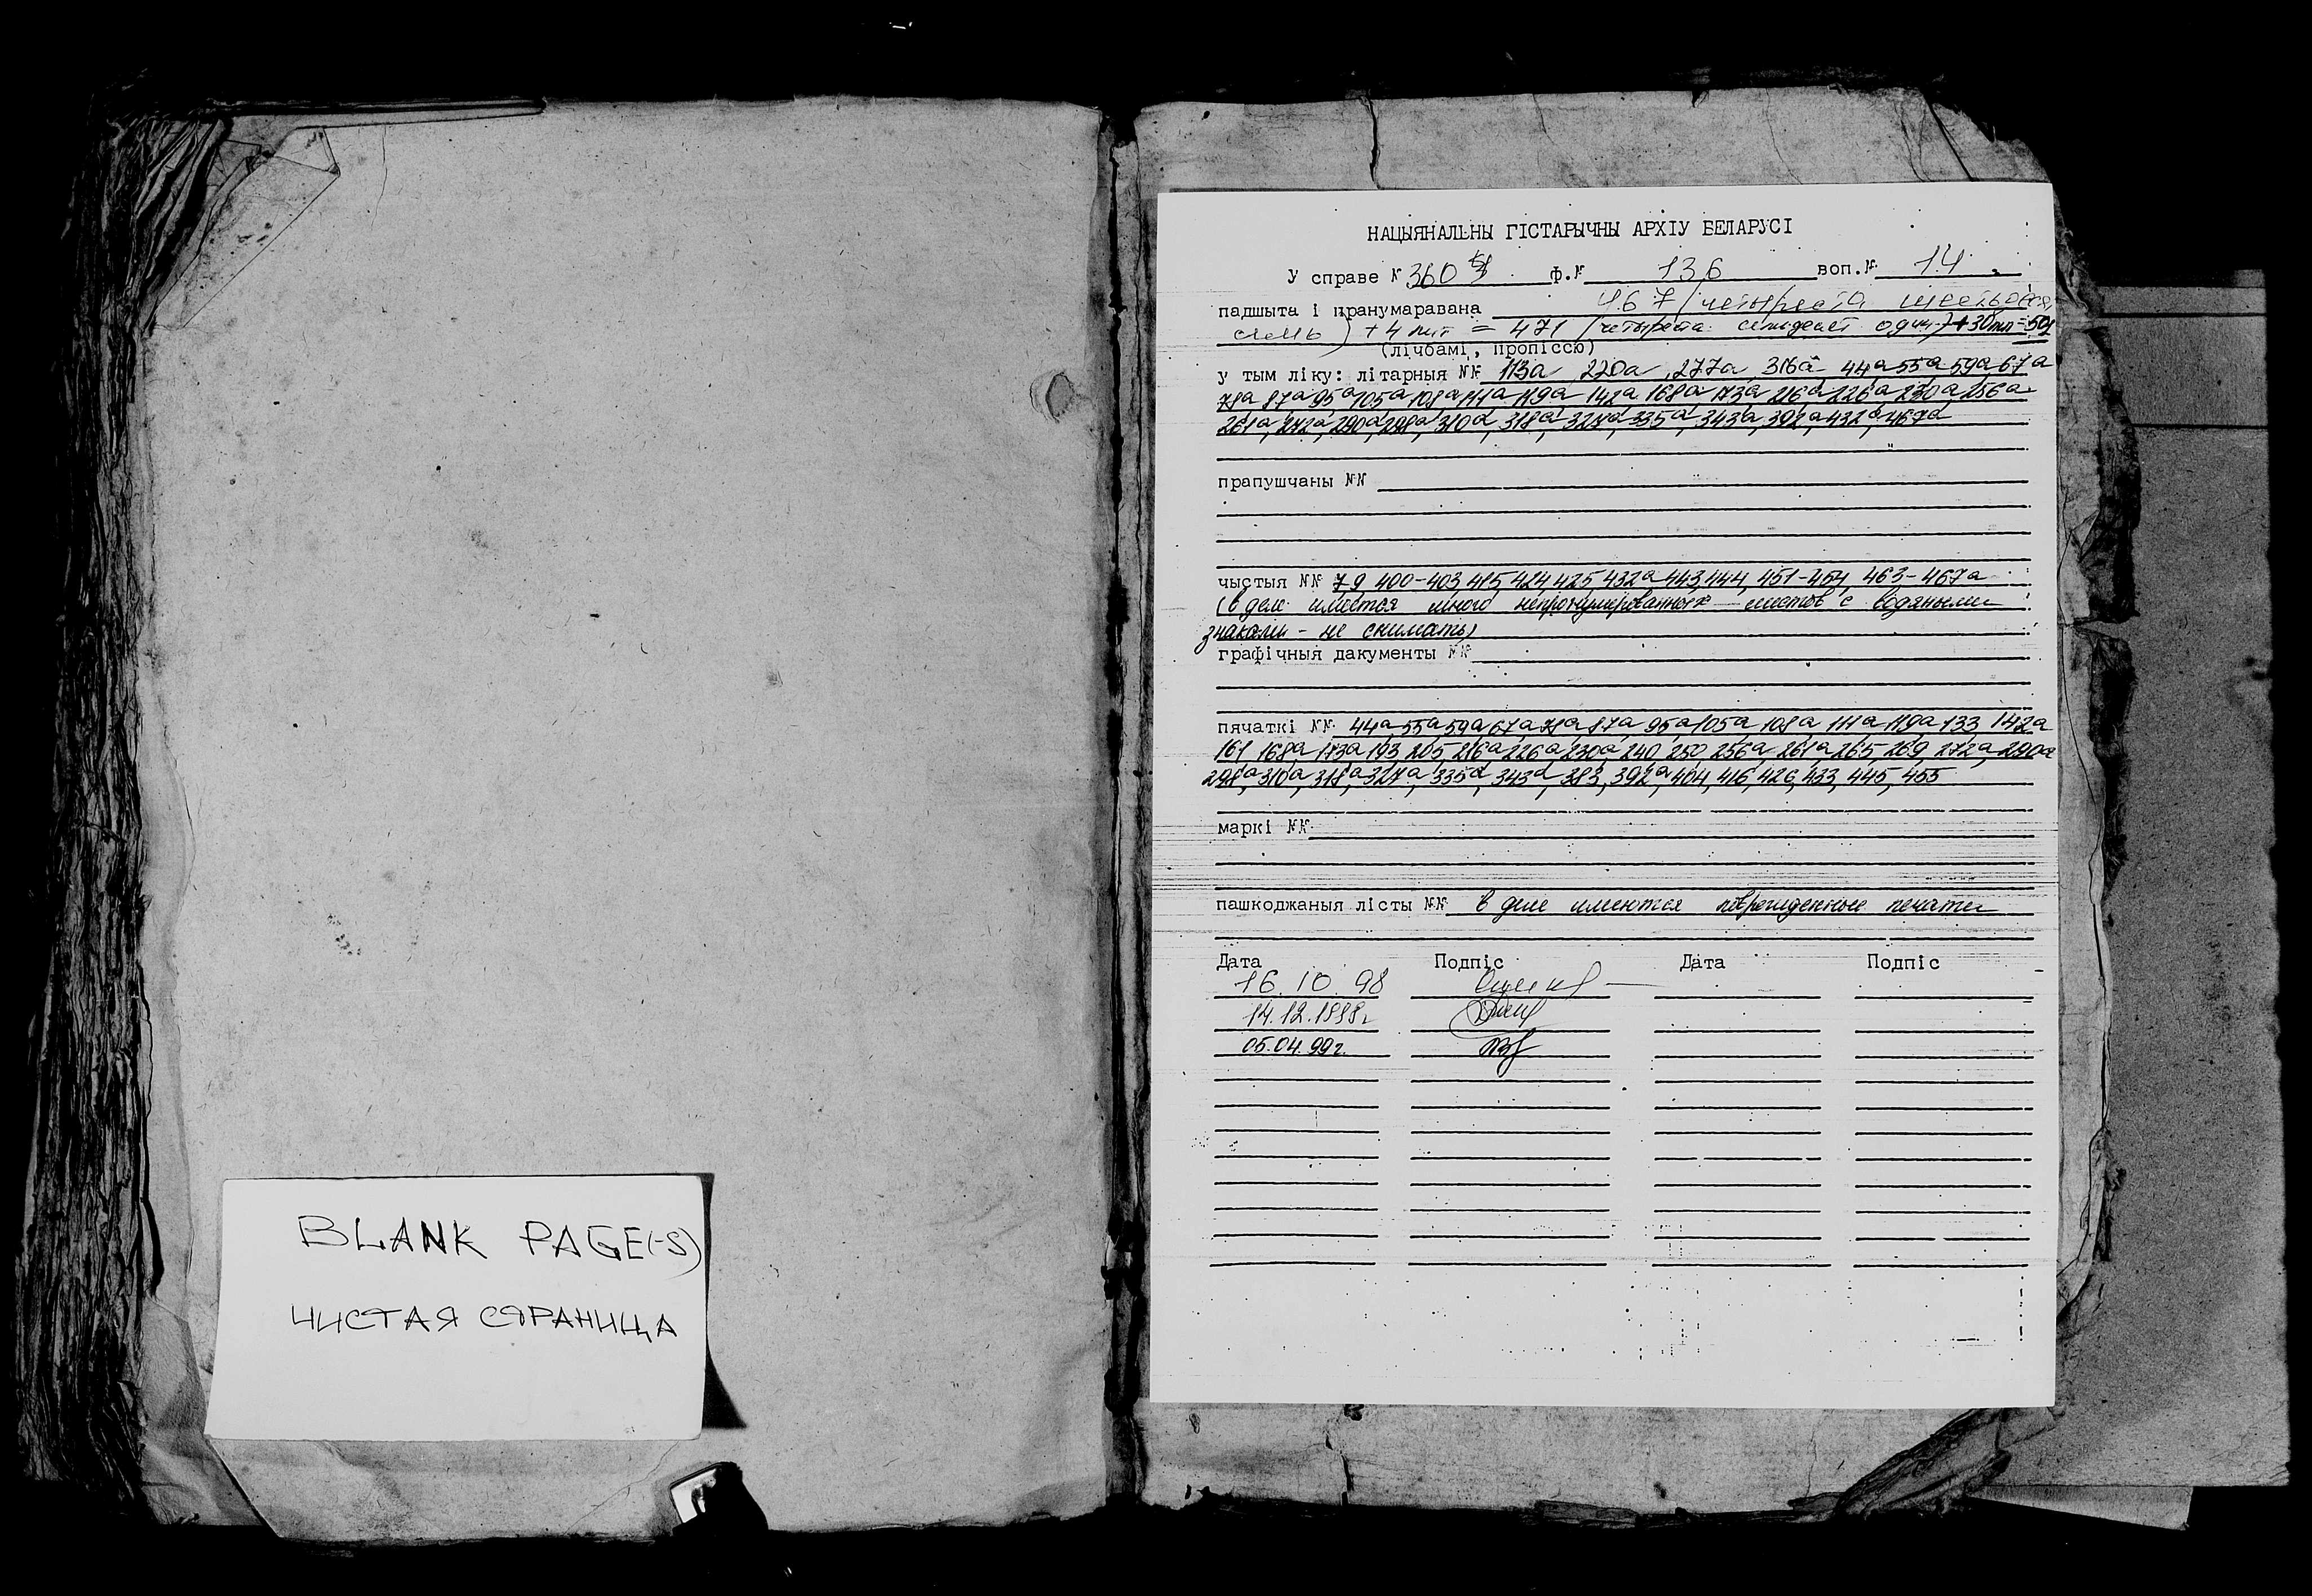 BLANK PAGE(-S)
ЧИСТАЯ СТРАНИЦА
НАЦЫЯНАЛЬНЫ ГІСТАРЫЧНЫ АРХІУ БЕЛАРУСІ
У справе № 360 ф.№ 136 воп.№ 14
падшыта і пранумаравана 467 (четыреста шестьдесят
семь) + 4 лит = 471 (четыреста семьдесят один) + 30 лит = 501
(лічбамі, пропіссю)
у тым ліку: літарныя №№ 113а, 220а, 277а, 316а 44а, 55а, 59а, 67а
78а, 87а, 95а, 105а, 108а, 111а, 119а, 142а, 168а, 173а, 216а, 226а, 230а, 256а
261а, 272а, 290а, 298а, 310а, 318а, 327а, 335а, 343а, 392а, 432а, 467а
прапушчаны №№
чыстыя №№ 7, 9, 400-403, 415, 424, 425, 432а, 443, 444, 451-454, 463-467а
(в деле имеется много непронумерованных листов с водяными
знаками - не снимать)
графічныя дакументы №№
пячаткі №№ 44а, 55а, 59а, 67а, 78а, 87а, 95а, 105а, 108а, 111а, 119а, 133, 142а
161, 168а, 173а, 193, 205, 216а, 226а, 230а, 240, 250, 256а, 261а, 265, 269, 272а, 290а
298а, 310а, 318а, 327а, 335а, 343а, 383, 392а, 404, 416, 426, 433, 445, 455
маркі №№
пашкоджаныя лісты №№ в деле имеются поврежденные печати
Дата Подпіс Дата Подпіс
16.10.98
14.12.1998г.
05.04.99г.